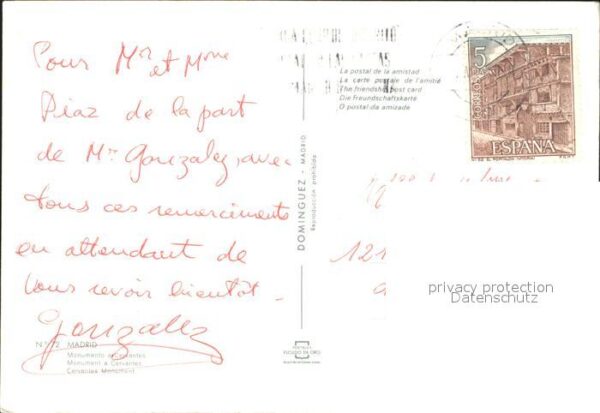 Pour Mr et Mme
Diaz de la part
de Mr Gonzalez, avec
tous ces remerciments
en attendant de
vous revoir bientôt.
Gonzalez
N.º 72 MADRID
Monumento a Cervantes
Monument a Cervantes
Cervantes Monument
DOMINGUEZ - MADRID
Reproducción prohibida
La postal de la amistad
La carte postale de l'amitié
The friendship post card
Die Freundschaftskarte
O postal da amizade
5
CORREOS
ESPAÑA
121
privacy protection
Datenschutz